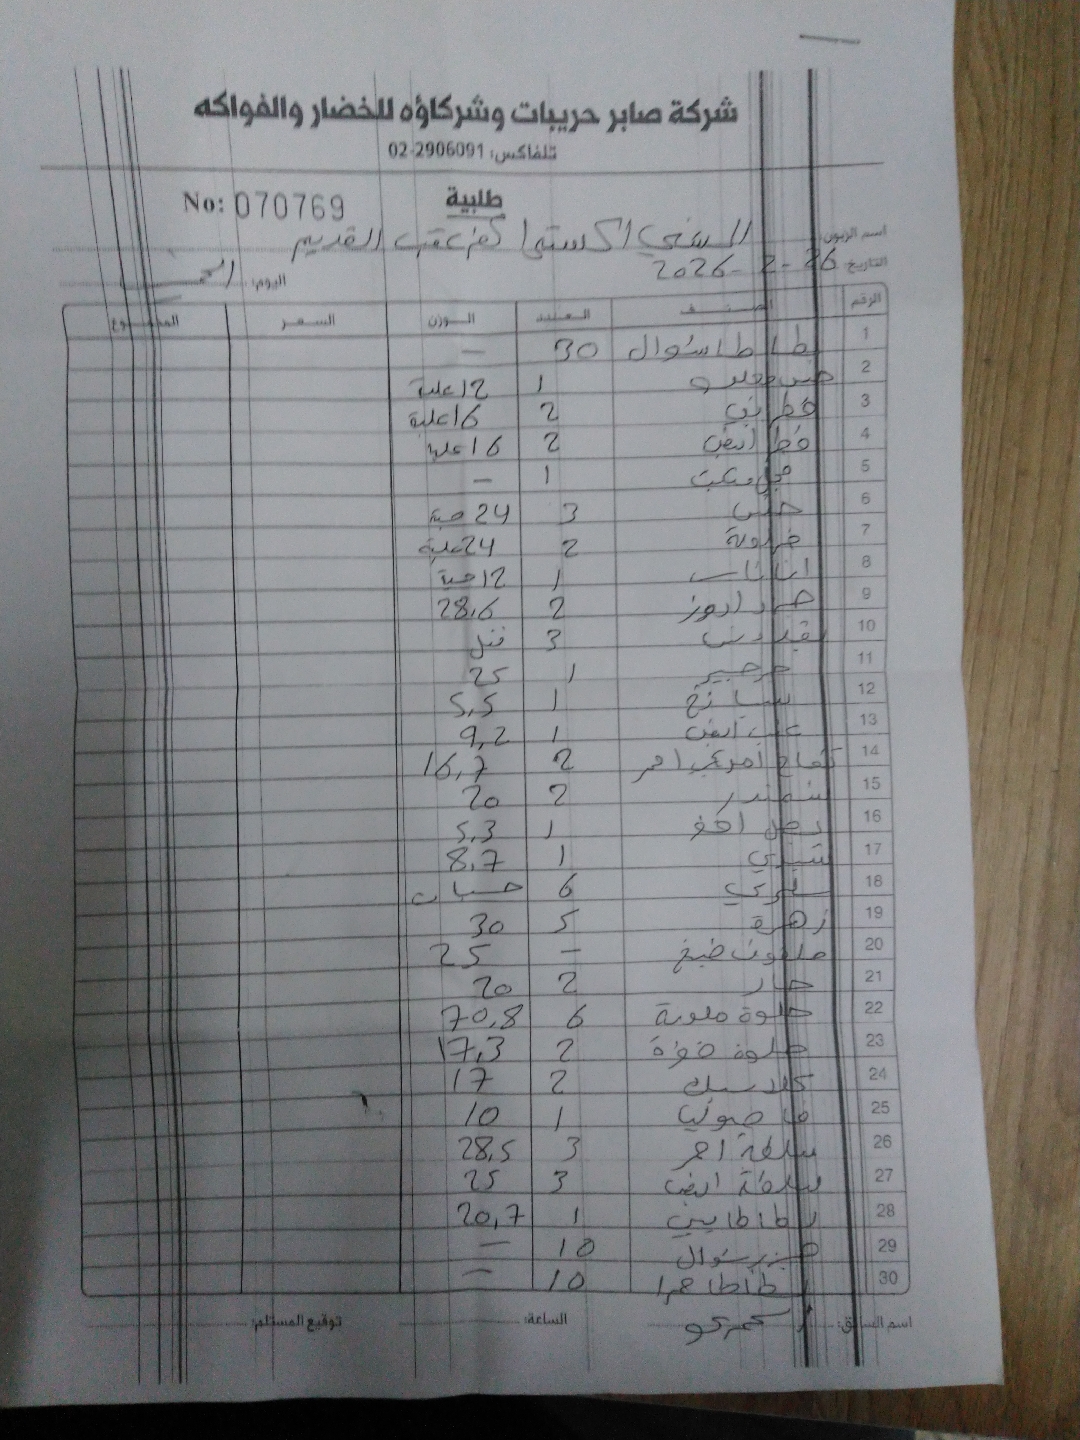 شركة صابر حريبات وشركاؤه للخضار والفواكه
تلفاكس: 02-2906091
طلبية
No: 070769
اسم الزبون: السني اكسترا كفر عقب القديم
التاريخ: 26-2-2026 اليوم:
الرقم الصنف العدد الوزن السعر المجموع
1 بطاطا شوال 30 —
2 1 12 علبة
3 فطر بني 2 16 علبة
4 فطر ابيض 2 16 علبة
5 فجل مكبت 1 —
6 خس 3 24 حبة
7 فراولة 2 24 علبة
8 اناناس 1 12 حبة
9 2 28,6
10 بقدونس 3 فتل
11 جرجير 1 25
12 سبانخ 1 5,5
13 عنب ابيض 1 9,2
14 تفاح امريكي احمر 2 16,7
15 شمندر 2 20
16 بصل اخضر 1 5,3
17 1 8,7
18 سلري 6 حبات
19 زهرة 5 30
20 ملفوف طبخ — 25
21 خيار 2 20
22 حلوة ملونة 6 70,8
23 حلوة 2 17,3
24 كلاسيك 2 17
25 فاصوليا 1 10
26 سلطة احمر 3 28,5
27 سلطة ابيض 3 25
28 بطاطا بيبي 1 20,7
29 جزر شوال 10 —
30 بطاطا حمرا 10 —
اسم السائق: الساعة: توقيع المستلم: